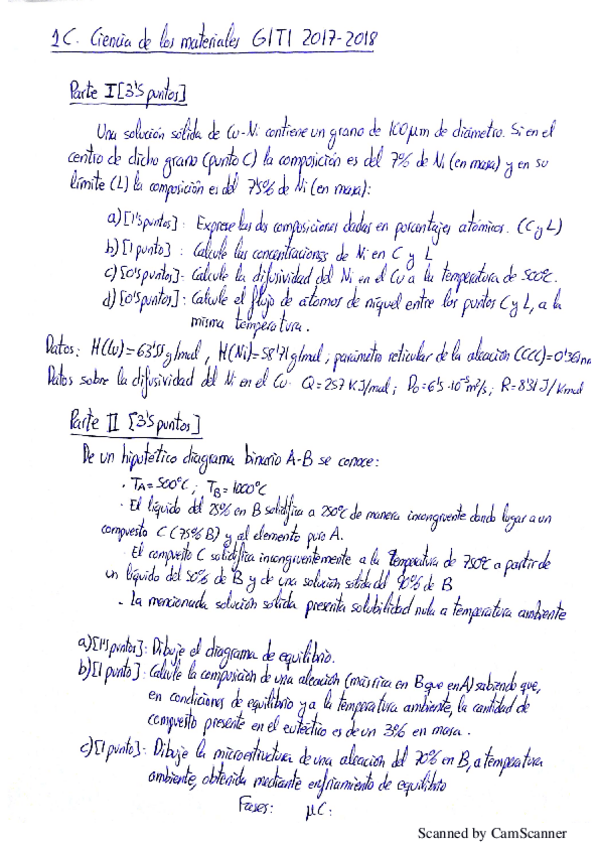 1C. Ciencia de los materiales GITI 2017-2018
Parte I [3'5 puntos]
Una solución sólida de Cu-Ni contiene un grano de 100 μm de diámetro. Si en el
centro de dicho grano (punto C) la composición es del 7% de Ni (en masa) y en su
límite (L) la composición es del 7'5% de Ni (en masa):
a) [1'5 puntos]: Exprese las dos composiciones dadas en porcentajes atómicos. (C y L)
b) [1 punto]: Calcule las concentraciones de Ni en C y L
c) [0'5 puntos]: Calcule la difusividad del Ni en el Cu a la temperatura de 500ºC.
d) [0'5 puntos]: Calcule el flujo de átomos de níquel entre los puntos C y L, a la
misma temperatura.
Datos: M(Cu)=63'55 g/mol, M(Ni)=58'71 g/mol; parámetro reticular de la aleación (CCC)=0'361 nm
Datos sobre la difusividad del Ni en el Cu: Q=257 KJ/mol; D₀=6'5·10⁻⁵ m²/s; R=8'31 J/Kmol
Parte II [3'5 puntos]
De un hipotético diagrama binario A-B se conoce:
· TA=500ºC; TB=1000ºC
· El líquido del 25% en B solidifica a 250ºC de manera incongruente dando lugar a un
compuesto C (75% B) y al elemento puro A.
· El compuesto C solidifica incongruentemente a la temperatura de 750ºC a partir de
un líquido del 50% de B y de una solución sólida del 90% de B
· La mencionada solución sólida presenta solubilidad nula a temperatura ambiente
a) [1'5 puntos]: Dibuje el diagrama de equilibrio.
b) [1 punto]: Calcule la composición de una aleación (más rica en B que en A) sabiendo que,
en condiciones de equilibrio y a la temperatura ambiente, la cantidad de
compuesto presente en el eutéctico es de un 3% en masa.
c) [1 punto]: Dibuje la microestructura de una aleación del 70% en B, a temperatura
ambiente, obtenida mediante enfriamiento de equilibrio
Fases: μC:
Scanned by CamScanner